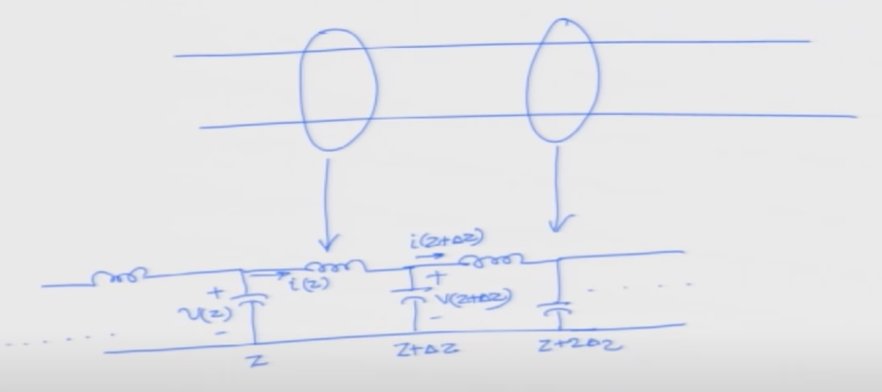 i(z+Δz)
+
i(z)
+
v(z)
-
v(z+Δz)
-
z
z+Δz
z+2Δz